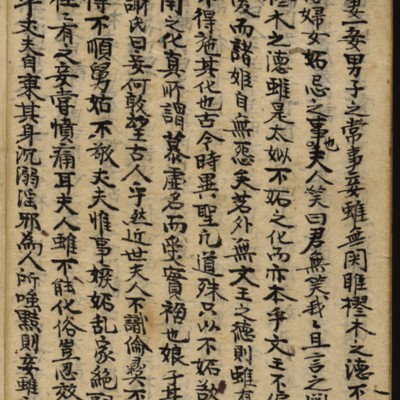 妻一妾男子之常事妾雖無関雎樛木之德不
婦女妬忌之事也夫人笑曰君無笑我〻且言之
樛木之德雖是太姒不妬之化而亦本乎文王不偏
愛而諸姬自無怨矣若外無文王之德則雖有
不得施其化也古今時異聖凡道殊只以不妬欲
南之化真所謂慕虛名而受實禍也娘子其
謝氏曰妾何敢望古人乎然近世夫人不識倫彛不
得不順舅姑不敬丈夫惟事嫉妬乱家絶
往〻有之妾嘗憤痛耳夫人雖不能化俗豈忍效
乎丈夫自棄其身沉溺滛邪為人所唾黙則妾雖